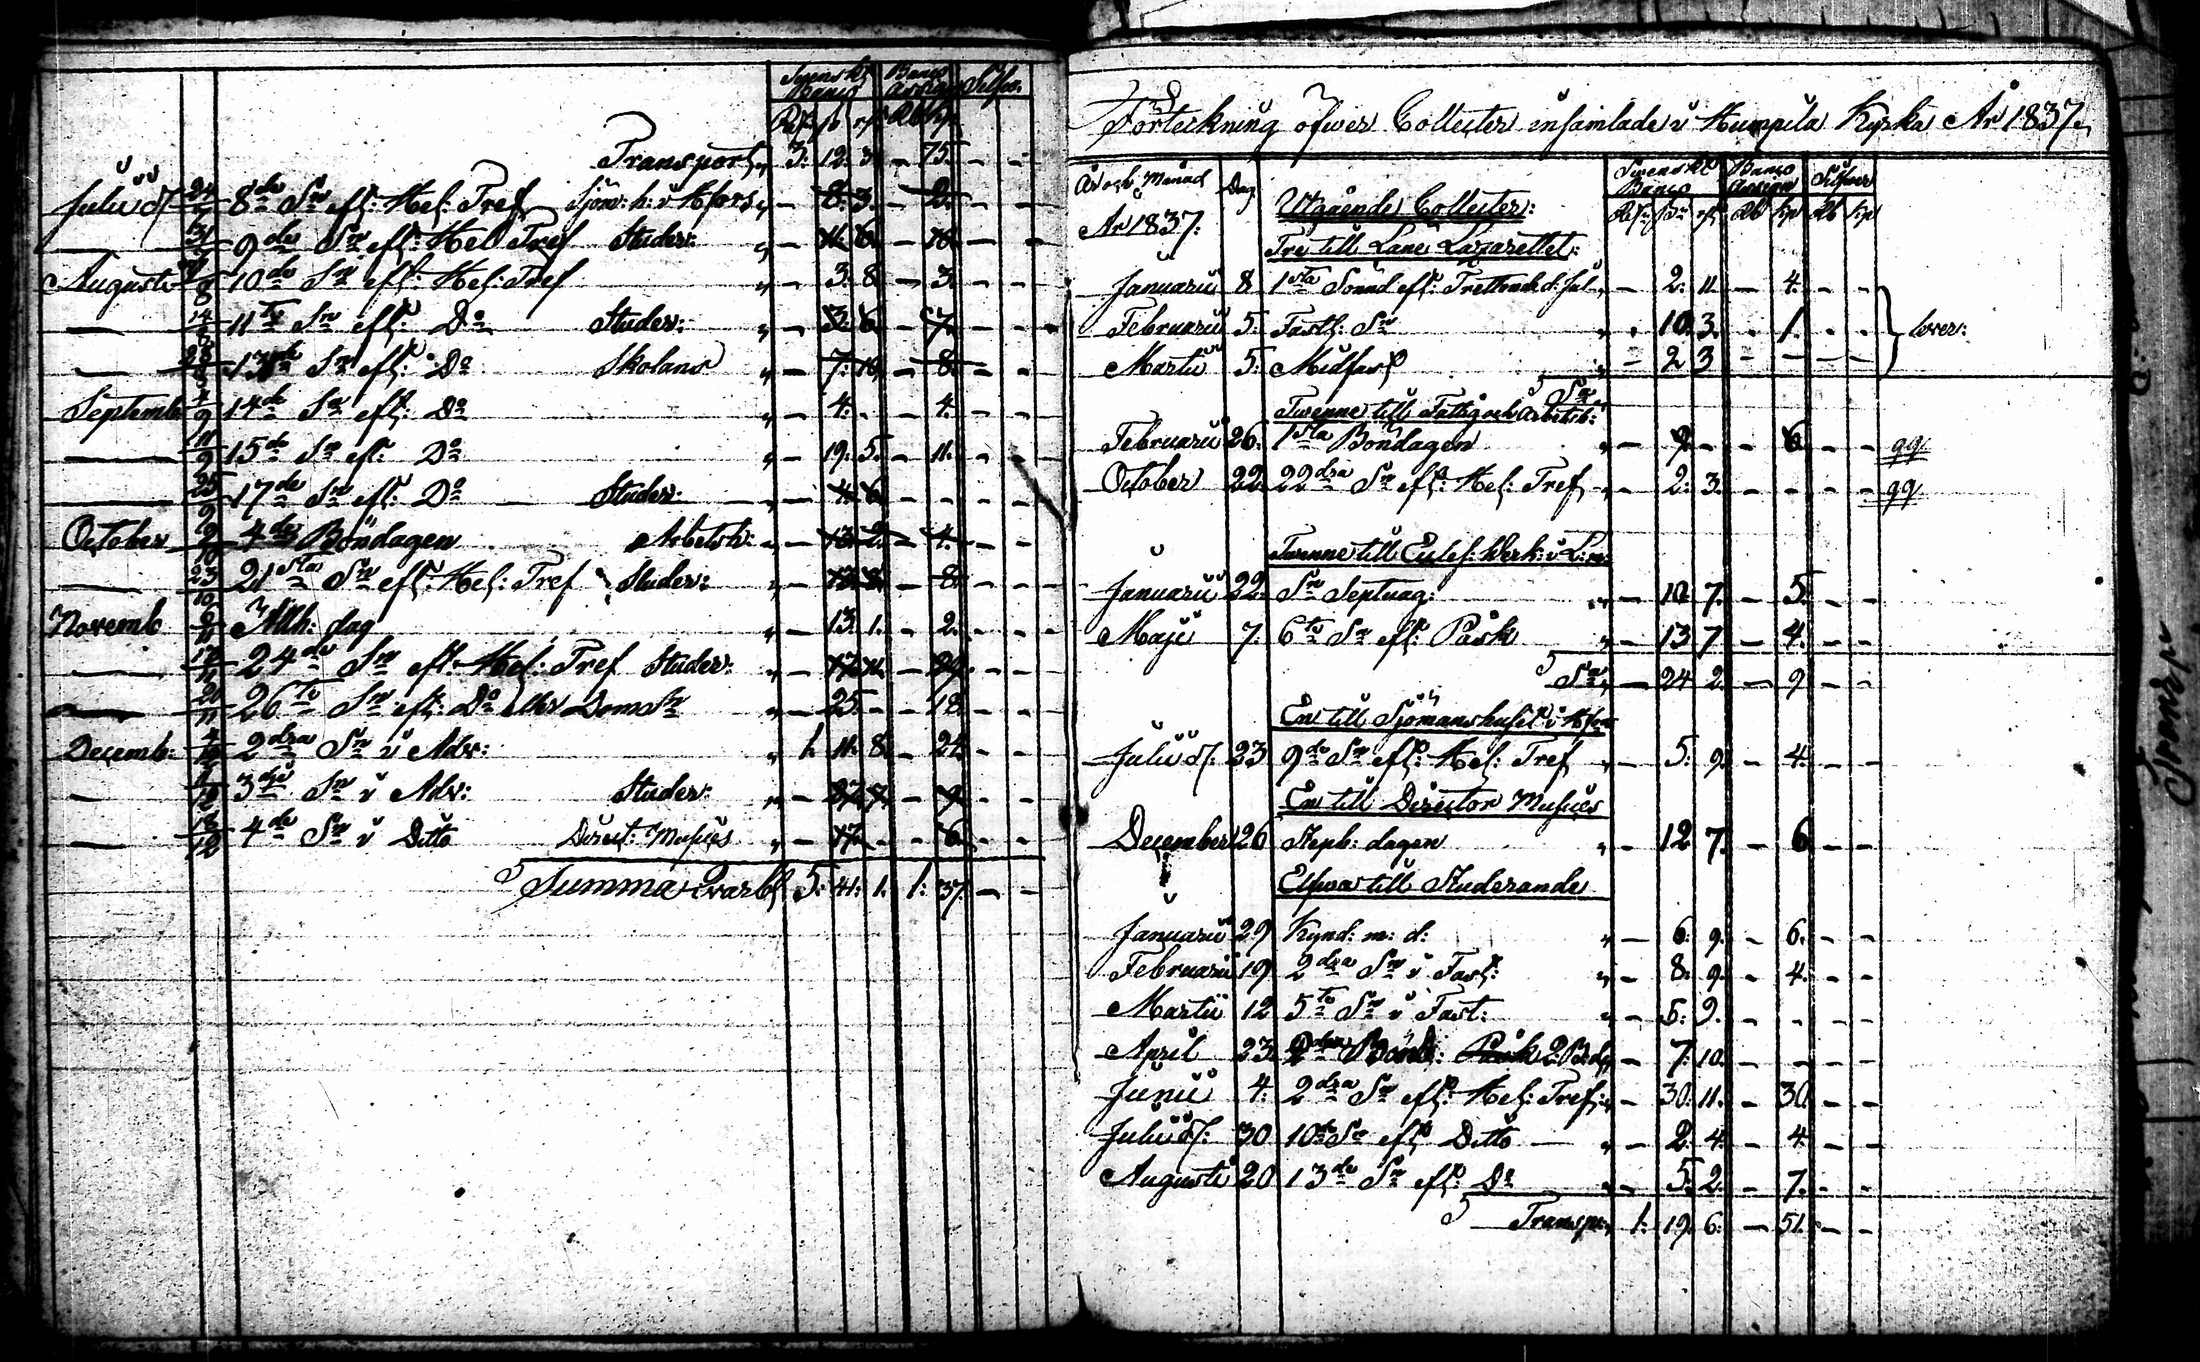 Svenskt Banco Banco Assign Silfver
Rdr sk rst Rbl kop
Transport „ 3: 12. 3. – 75. – –
Julii d. 24/7 8de Sön eft: Hel: Tref Sjöm: h: i Hfors „ – 8. 3. – 2. – –
— 31/7 9de Sön eft: Hel: Tref Studer: „ – 11. 6. – 10. – –
Augusti 7/8 10de Sön eft: Hel: Tref „ – 3. 8. – 3. – –
— 14/8 11te Sön eft: Do Studer: „ – 6. – 7. – –
— 28/8 13de Sön eft: Do Skolans „ – 7. 10. – 8. – –
Septemb 4/9 14de Sön eft: Do „ – 4. – – 4. – –
— 11/9 15de Sön eft: Do „ – 19. 5. – 11. – –
— 25/9 17de Sön eft: Do Studer: „ – 4. 6. – – – –
October 9/10 4de Böndagen Arbetsh: „ – 13. 2. – 4. – –
— 23/10 21sta Sön eft: Hel: Tref Studer: „ – – 8. – –
Novemb 6/11 Allh: dag „ – 13. 1. – 2. – –
— 24de Sön eft: Hel: Tref Studer: „ – – –
— 26te Sön eft: Do eller Doms Sön „ – 25. – – 18. – –
Decemb: 4/12 2dra Sön i Adv: „ 1. 11. 8. – 24. – –
— 11/12 3dje Sön i Adv: Studer: „ – – 9. – –
— 18/12 4de Sön i Ditto Direct: Musices „ – 17. – – 6. – –
Summa Qvarbl 5: 41: 1. 1: 37. – –
Förteckning öfver Collecter insamlade i Humpila Kyrka År 1837.
År och Månad Dag Svenskt Banco Banco Assign Silfver
År 1837. Utgående Collecter: Rdr sk rst Rbl kop Rbl kop
Tre till Läne Lazarettet:
Januarii 8. 1sta Sönd eft: Trettond: d: Jul „ – 2. 11. – 4. – –
Februarii 5. Fastl: Sön „ – 10. 3. – 1. – – lever:
Martii 5. Midfast „ – 2 3 – – – –
Tvenne till Fattig och Arbetsh:
Februarii 26. 1sta Böndagen „ – 9. – – 6. – – qq.
October 22. 22dra Sön eft: Hel: Tref „ – 2. 3. – – – – qq.
Tvenne till Eccles: Verk:
Januarii 22. Sön Septuag: „ – 10. 7. – 5. – –
Maji 7. 6te Sön eft: Påsk „ – 13 7 – 4. – –
Sa „ – 24 2 – 9 – –
En till Sjömanshuset i Hfors
Julii d. 23 9de Sön eft: Hel: Tref „ – 5. 9. – 4. – –
En till Director Musices
December 26 Steph: dagen „ – 12. 7. – 6 – –
Elfva till Studerande
Januarii 29 Kynd: m: d: „ – 6. 9. – 6. – –
Februarii 19 2dra Sön i Fast: „ – 8. 9. – 4. – –
Martii 12 5te Sön i Fast: „ – 5. 9. – – – –
April 23. Påsk „ – 7. 10. – – – –
Junii 4. 2dra Sön eft: Hel: Tref: „ – 30. 11. – 30. – –
Julii d. 30 10de Sön eft: Ditto — „ – 2. 4. – 4 – –
Augusti 20 13de Sön eft: Do „ – 5. 2. – 7. – –
Transp: „ 1. 19. 6. – 51. – –